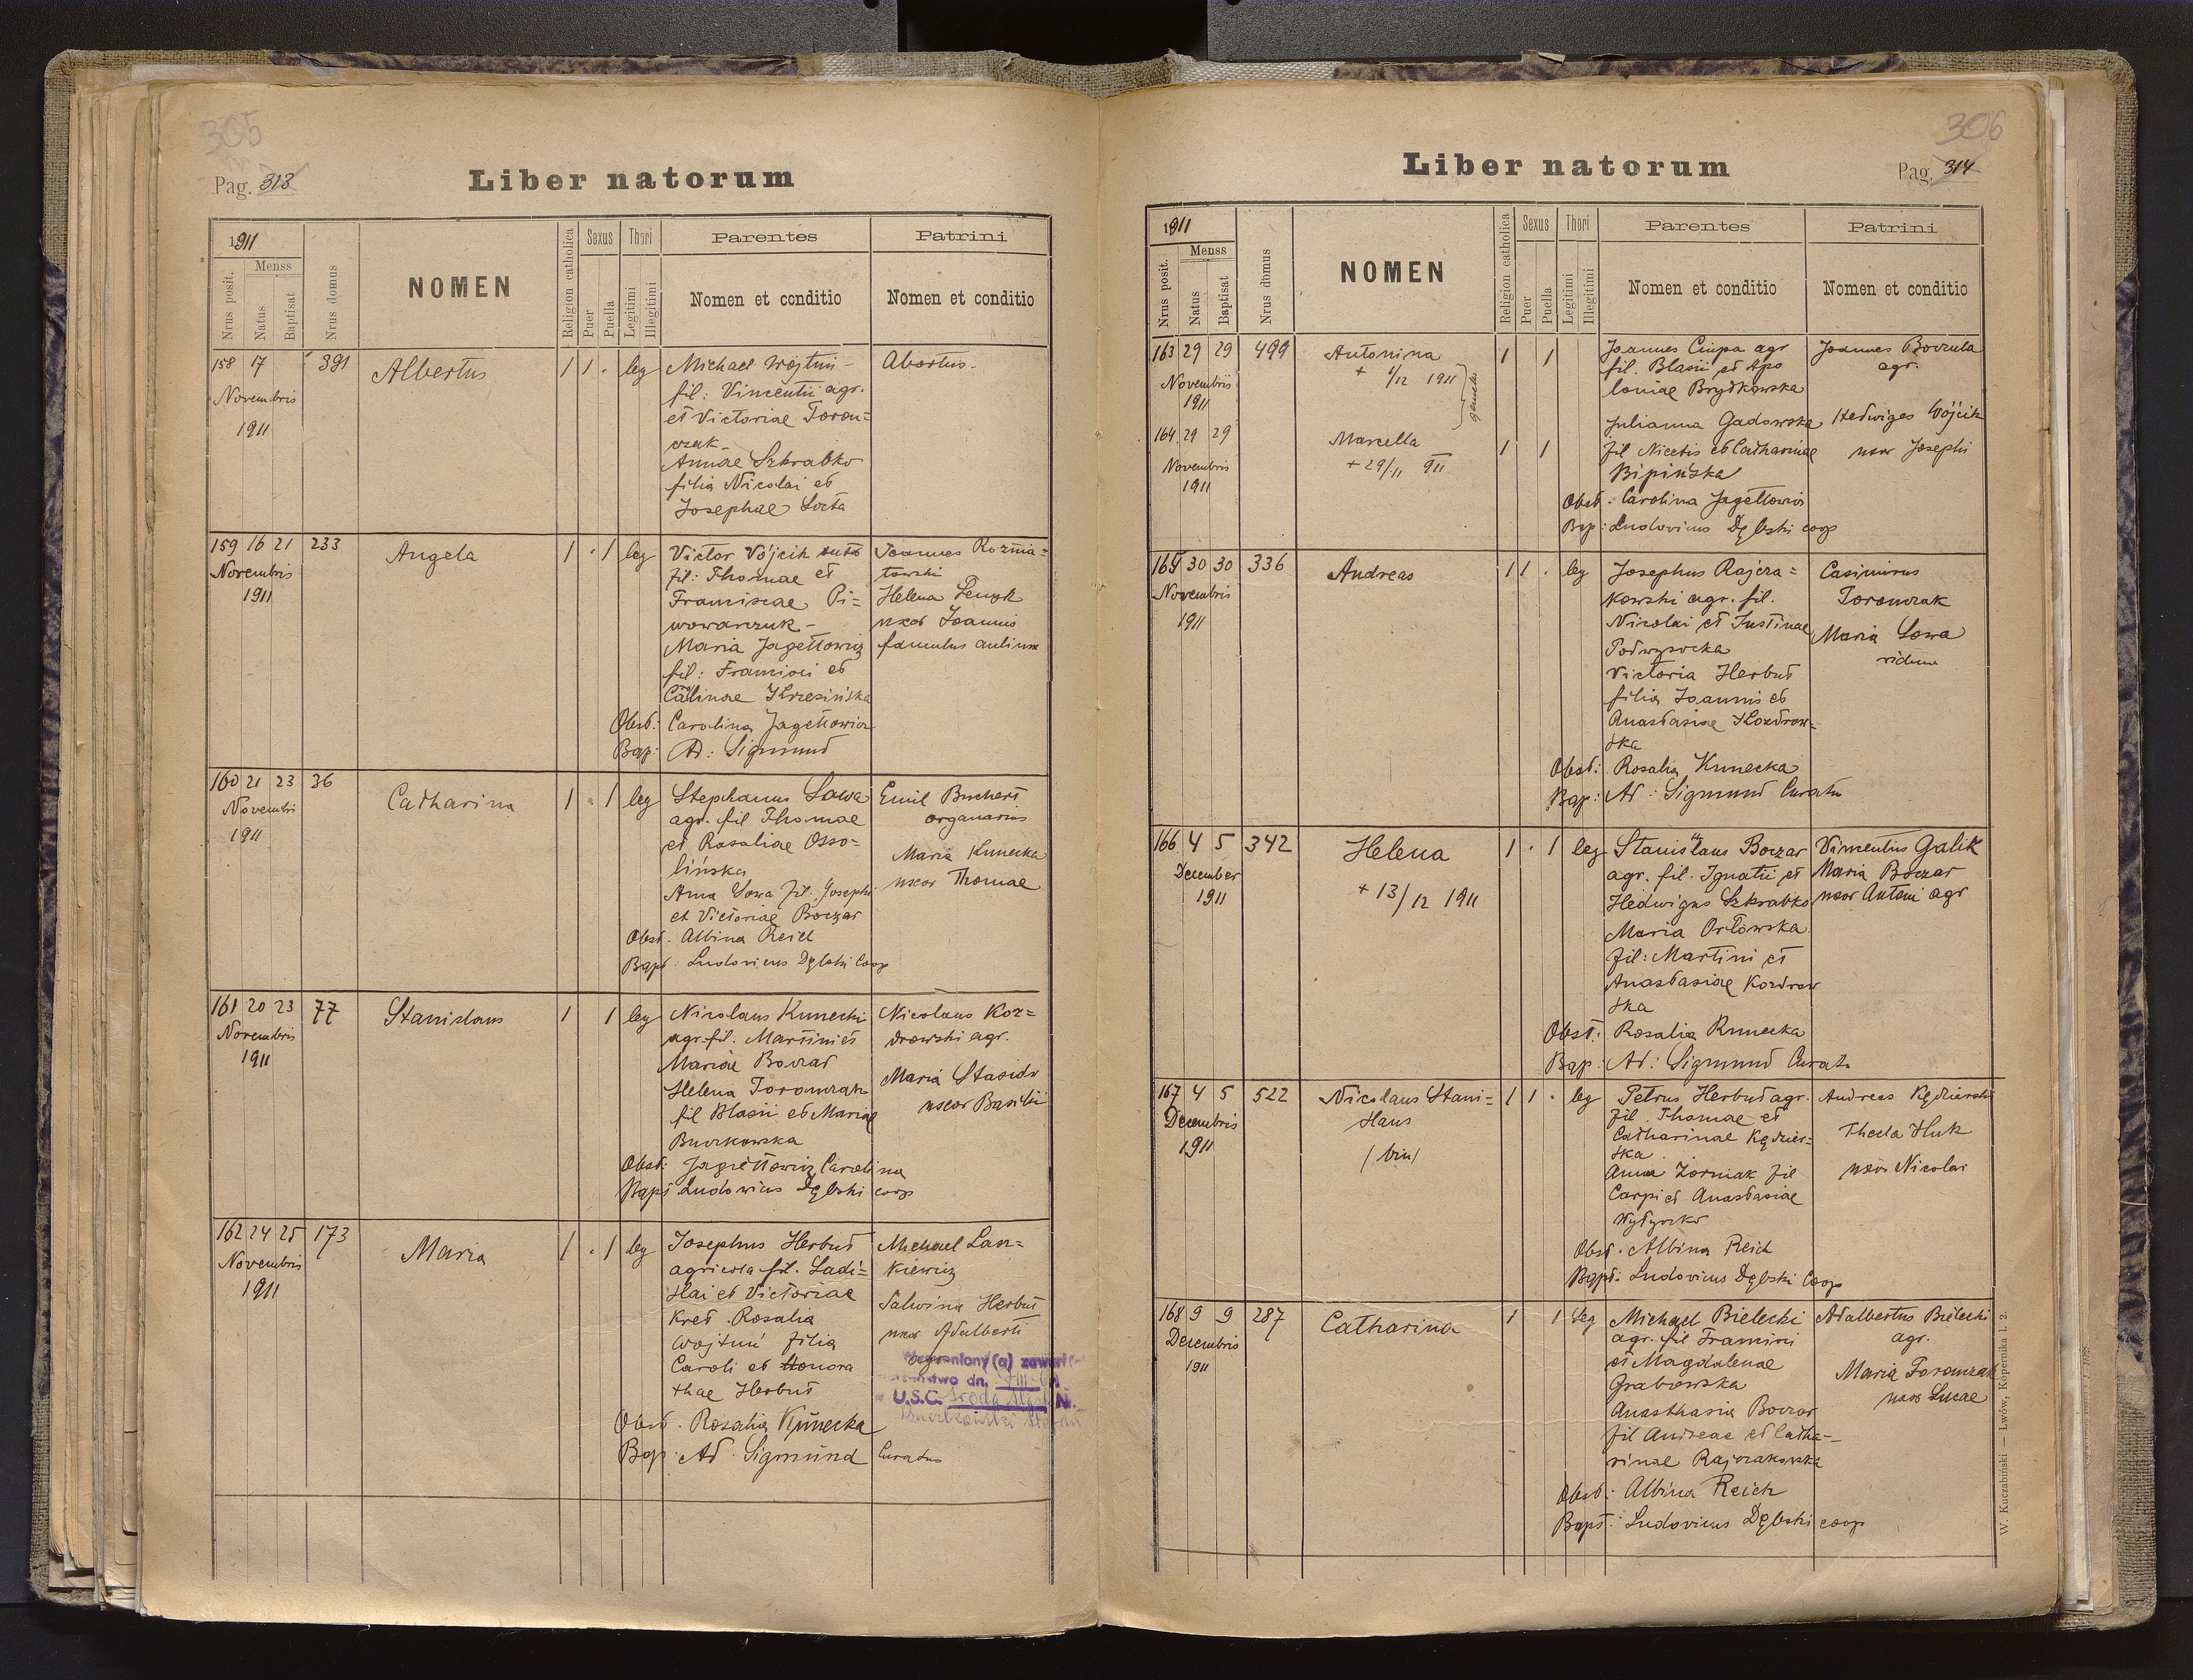 305
Pag. 313
Liber natorum
1911
Nrus posit.
Menss
Natus
Baptisat
Nrus domus
NOMEN
Religion catholica
Sexus
Puer
Puella
Thori
Legitimi
Illegitimi
Parentes
Nomen et conditio
Patrini
Nomen et conditio
158 17 391 Albertus 1 1 . leg Michael Wojtuń Abortus.
Novembris fil: Vincentii agr.
1911 et Victoriae Toron=
czak
Annae Szkrabko
filia Nicolai et
Josephae
159 16 21 233 Angela 1 . 1 leg Victor Vójcik Joannes Roznia=
Novembris fil: Thomae et towski
1911 Franciscae Pi= Helena
wowarczuk - uxor Joannis
Maria Jagiełłowicz famulus
fil: Francisci et
Krzesińska
Obst: Carolina Jagiełłowicz
Bap: Ad: Sigmund
160 21 23 36 Catharina 1 . 1 leg Stephanus Sowa Emil Buchert
Novembri agr. fil Thomae organarius
1911 et Rosaliae Osso= Maria Kunecka
lińska uxor Thomae
Anna Sowa fil. Josephi
et Victoriae Boczar
Obst. Albina Reich
Bapt: Ludovicus Dębski Coop
161 20 23 77 Stanislaus 1 1 leg Nicolaus Kunecki Nicolaus Koz=
Novembris agr. fil. Martini et drowski agr.
1911 Mariae Boczar Maria Stasidr
Helena Toronczak uxor Basilii
fil Blasii et Mariae
Buczkowska
Obst: Jagiełłowicz Carolina
Bapt Ludowicus Dębski coop
162 24 25 173 Maria 1 . 1 leg Josephus Herbut Michael Lasz=
Novembris agricola fil. Ladi= kiewicz
1911 slai et Victoriae Salwina Herbut
Kret. Rosalia uxor Adalberti
Wojtuń filia agr.
Caroli et Honora
thae Herbut
Obst. Rosalia Kunecka
Bap: Ad. Sigmund Curatus
Wymieniony (a) zawarł
dn.
U.S.C. Środa Śląska N.
306
Liber natorum
Pag. 314
1911
Nrus posit.
Menss
Natus
Baptisat
Nrus domus
NOMEN
Religion catholica
Sexus
Puer
Puella
Thori
Legitimi
Illegitimi
Parentes
Nomen et conditio
Patrini
Nomen et conditio
163 29 29 499 Antonina 1 1 Joannes Ciupa agr Joannes Boczula
+ 1/12 1911 fil. Blasii et Apo agr.
Novembris loniae Brydkowska
1911 gemelli Julianna Gadowska Hedwiges Wójcik
164 29 29 Marcella 1 1 fil Nicetis et Catharinae uxor Josephi
Novembris + 29/11 911 Bipińska
1911
Obst: Carolina Jagiełłowicz
Bap: Ludovicus Dębski coop
165 30 30 336 Andreas 1 1 . leg Josephus Rajcza= Casimirus
Novembris kowski agr. fil. Toronczak
1911 Nicolai et Justinae Maria Sowa
Podwysocka vidua
Victoria Herbut
filia Joannis et
Anastasiae Kozdrow=
ska
Obst: Rosalia Kunecka
Bap: Ad: Sigmund Curatu
166 4 5 342 Helena 1 . 1 leg Stanislaus Boczar Vincentius Galik
December + 13/12 1911 agr. fil. Ignatii et Maria Boczar
1911 Hedwigus Szkrabko uxor Antoni agr
Maria Orłowska
fil: Martini et
Anastasiae Kozdrow
ska
Obst: Rosalia Kunecka
Bap: Ad: Sigmund Curatu
167 4 5 522 Nicolaus Stani= 1 1 . leg Petrus Herbut agr. Andreas Kędzierski
Decembris slaus fil. Thomae et Thecla Huk
1911 /bin/ Catharinae Kędzier= uxor Nicolai
ska
Anna Zorniak fil
Carpi et Anastasiae
Obst. Albina Reich
Bapt: Ludovicus Dębski Coop
168 9 9 287 Catharina 1 1 leg Michael Bielecki Adalbertus Bielecki
Decembris agr. fil Francisci agr.
1911 et Magdalenae Maria Toronczak
Grabowska uxor Lucae
Anasthasia Boczar
fil Andreae et Catha=
rinae Rajczakowska
Obst: Albina Reich
Bapt: Ludovicus Dębski coop
W. Kuczabiński — Lwów, Kopernika l. 2.